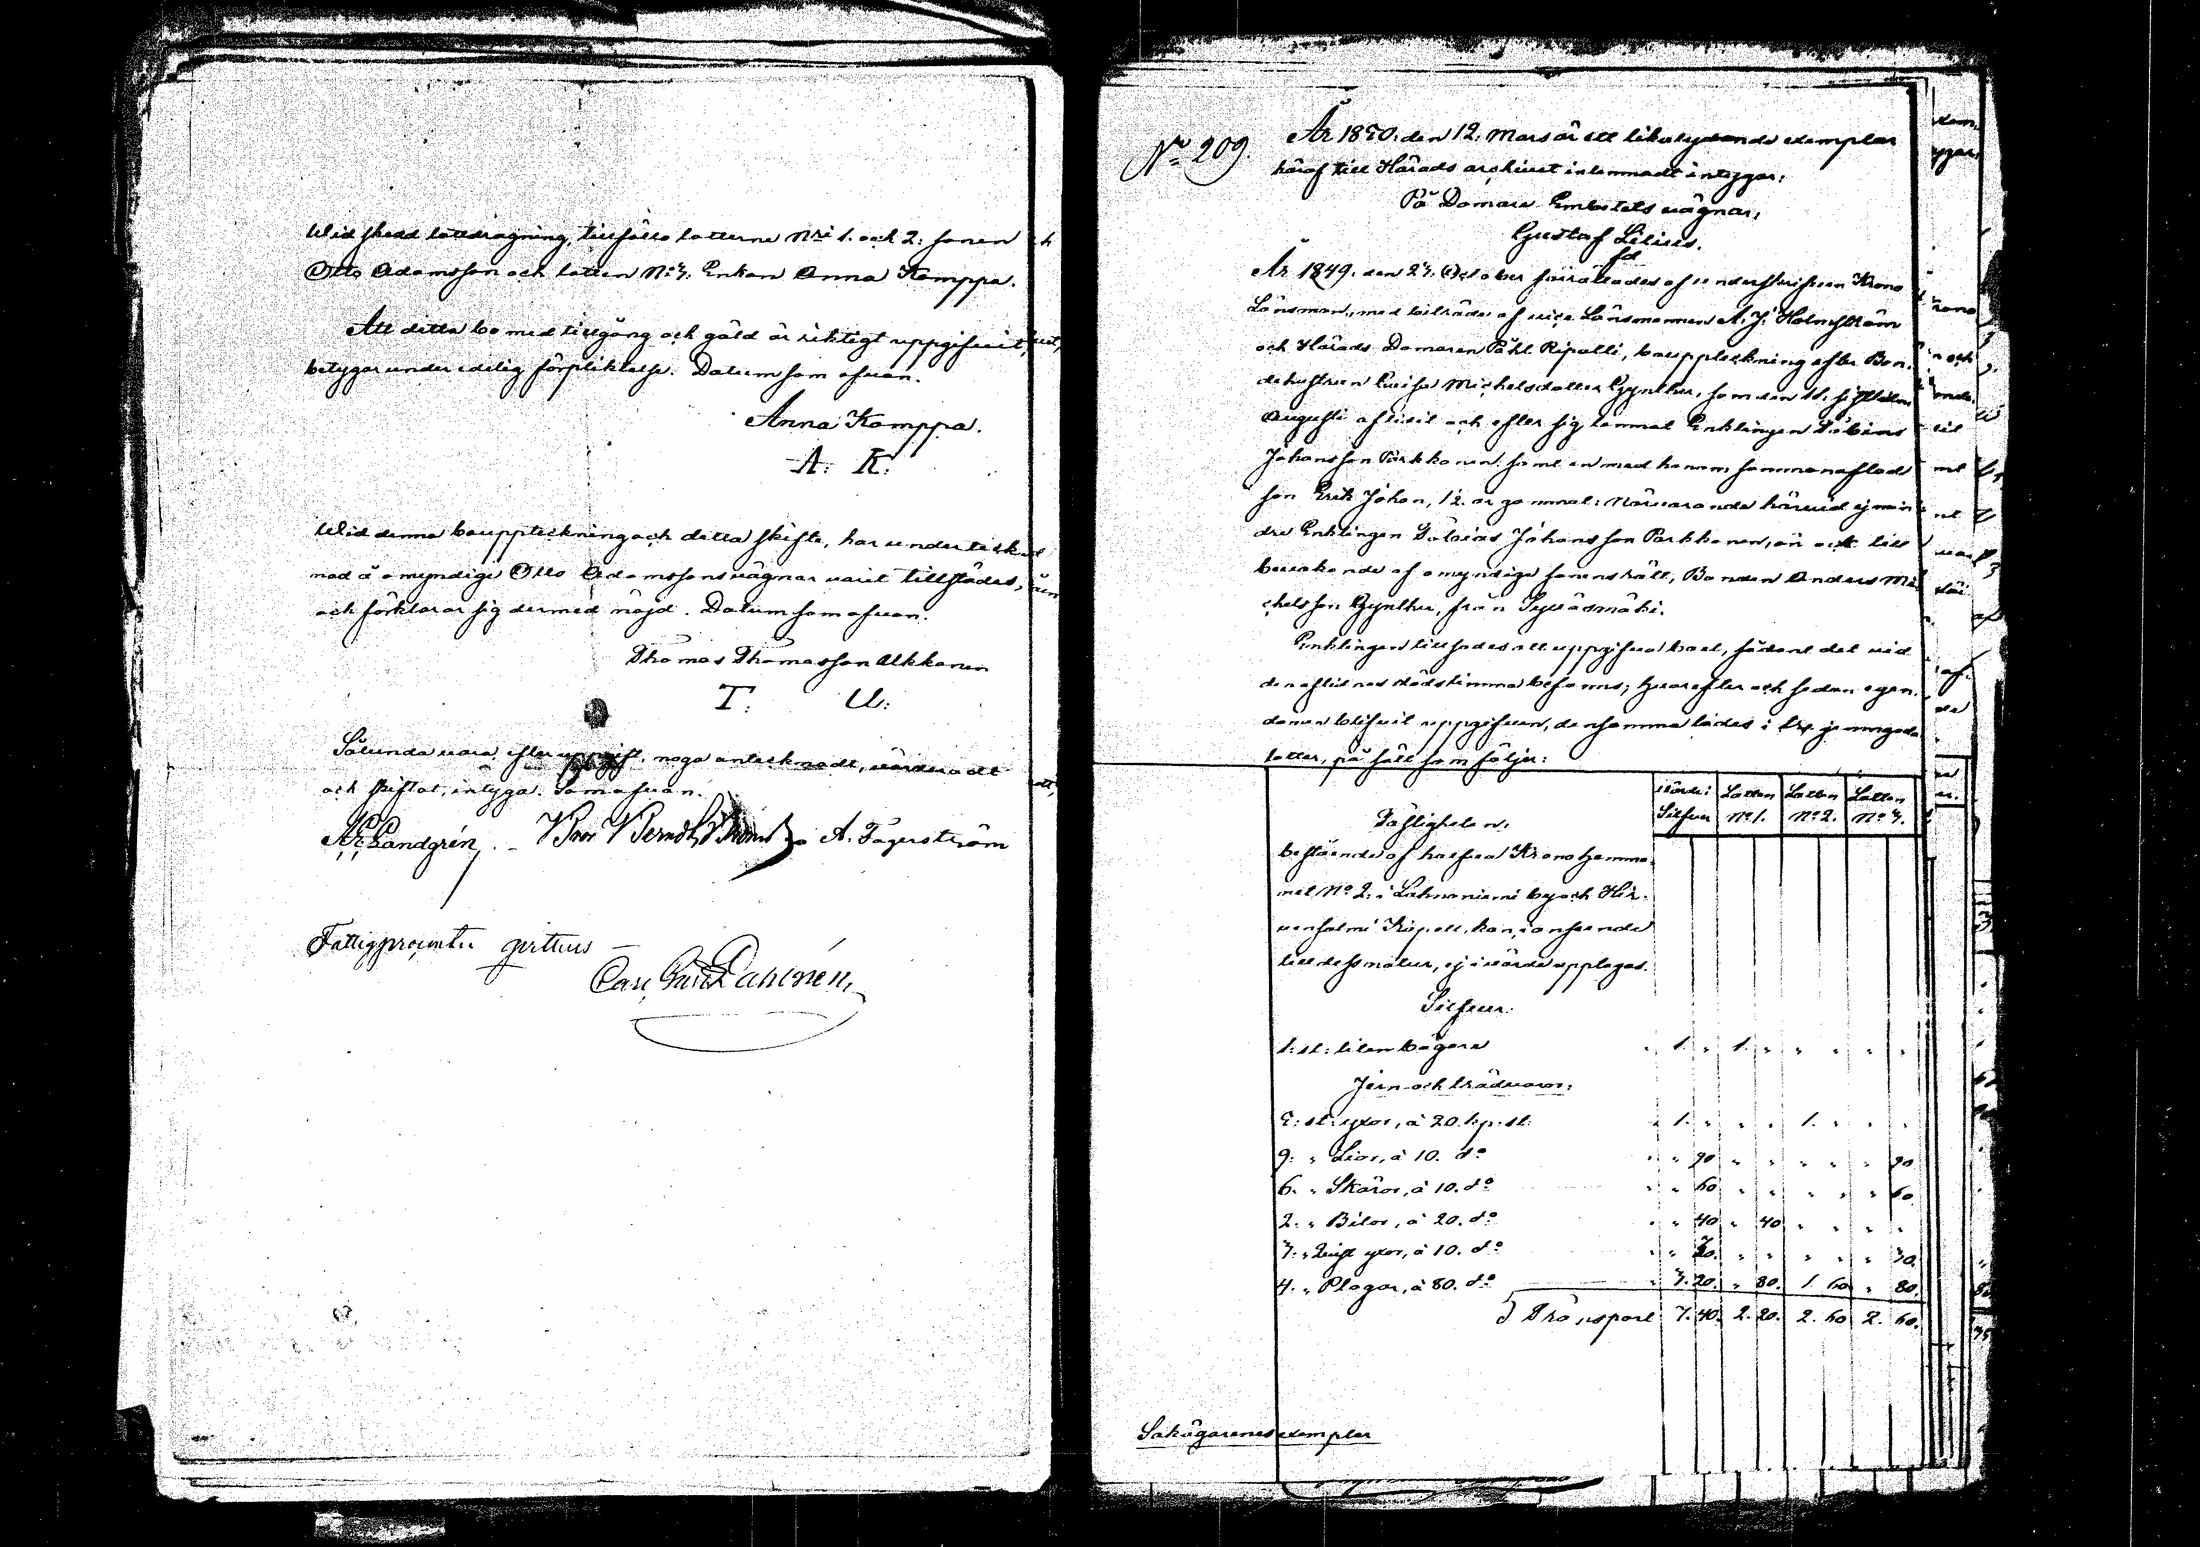 Wid skedd lottdragning, tillföllo lotterne Nri 1. och 2: sonen
Otto Adamsson och lotten No 3. Enkan Anna Kamppa.
Att detta bo med tillgång och gäld är riktigt uppgifvit,
betygar under edelig förpliktelse. Datum som ofvan.
Anna Kamppa.
A: K:
Wid denna bouppteckning och detta skifte, har underteck-
nad å omyndige Otto Adamssons vägnar varit tillstädes,
och förklarar sig dermed nöjd. Datum som ofvan.
Thomas Thomasson Ukkonen
T: U:
Sålunda vara efter uppgift, noga antecknadt, värderadt
och skiftat, intyga. Som ofvan.
Landgrén. A. Fagerström
Fattigprocenten
Carl Gust Dahlgrén,
No 209.
År 1850. den 12. Mars är ett likalydande exemplar
häraf till Härads archivet inlemnadt intygar;
På Domare Embetets vägnar,
Gustaf Lilius.
År 1849. den 23. October förrättades af underskrifven Krono
Länsman, med biträde af vice Länsmannen A. J. Holmström
och Härads Domaren Påhl Ripatti, bouppteckning efter Bon-
dehustrun Lovisa Michelsdotter Gynther, som den 11. sistledne
Augusti aflidit och efter sig lemnat Enklingen Tobias
Johansson Parkkonen samt en med honom sammanaflad
son Erik Johan, 12. år gammal: Närvarande härvid ej min-
dre Enklingen Tobias Johansson Parkkonen, än ock till
bevakande af omyndige sonens rätt, Bonden Anders Mi-
chelsson Gynther, från Syväsmäki.
Enklingen tillsades att uppgifva boet, sådant det vid
den aflidnas dödstimma befanns; hvarefter och sedan egen-
domen blifvit uppgifven, densamma lades i tre jemngoda
lotter, på sätt som följer:
Värde: Lotten Lotten Lotten
Silfver No 1. No 2. No 3.
Fastigheten.
bestående af halfva Kronohemma-
net No 2. i Lahnaniemi by och Hir-
vensalmi Kapell, kan, i anseende
till dess natur, ej i värde upptagas.
Silfver.
1: st: liten bägare " 1. " 1. " " " " "
Jern- och trädvaror:
5: st: yxor, à 20. kp. st: " 1. " " " 1. " " "
9: " Liar, à 10. do " " 90 " " " " " 90.
6. " Skäror, à 10. do " " 60 " " " " " 60.
2: " Bilor, à 20. do " " 40 " 40 " " " "
3: " yxor, à 10. do " " 30. " " " " " 30.
4. " Plogar, à 80. do " 3. 20. " 80. 1. 60 " 80.
Transport 7. 40. 2. 20. 2. 60 2. 60.
Sakägarenes exemplar